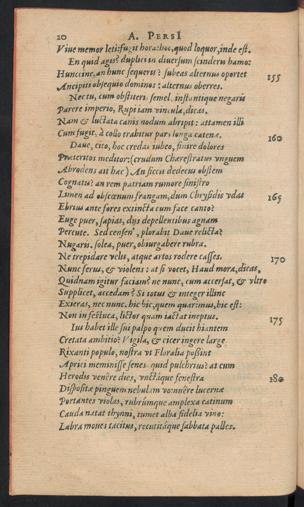 20 A. PERSI
Vive memor leti: fugit hora: hoc, quod loquor, inde est.
En quid agis? duplici in diversum scinderis hamo:
Hunccine, an hunc sequeris? subeas alternus oportet 155
Ancipiti obsequio dominos: alternus oberres.
Nec tu, cum obstiteris semel, instantique negaris
Parere imperio, Rupi iam vincula, dicas.
Nam & luctata canis nodum abripit: attamen illi
Cum fugit, à collo trahitur pars longa catenæ. 160
Dave, cito, hoc credas iubeo, finire dolores
Præteritos meditor: (crudum Chærestratus unguem
Abrodens ait hæc) An siccis dedecus obstem
Cognatis? an rem patriam rumore sinistro
Limen ad obscœnum frangam, dum Chrysidis udas 165
Ebrius ante fores extincta cum face canto?
Euge puer, sapias, diis depellentibus agnam
Percute. Sed censen', plorabit Dave relicta?
Nugaris. solea, puer, obiurgabere rubra.
Ne trepidare velis, atque artos rodere casses. 170
Nunc ferus, & violens: at si vocet, Haud mora, dicas,
Quidnam igitur faciam? ne nunc, cum accersat, & ultro
Supplicet, accedam? Si totus & integer illinc
Exieras, nec nunc. hic hic, quem quærimus, hic est:
Non in festuca, lictor quam iactat ineptus. 175
Ius habet ille sui palpo quem ducit hiantem
Cretata ambitio? Vigila, & cicer ingere large
Rixanti populo, nostra ut Floralia possint
Aprici meminisse senes. quid pulchrius? at cum
Herodis venêre dies, unctáque fenestra 180
Dispositæ pinguem nebulam vomuêre lucernæ
Portantes violas, rubrúmque amplexa catinum
Cauda natat thynni, tumet alba fidelia vino:
Labra moves tacitus, recutitáque sabbata palles.